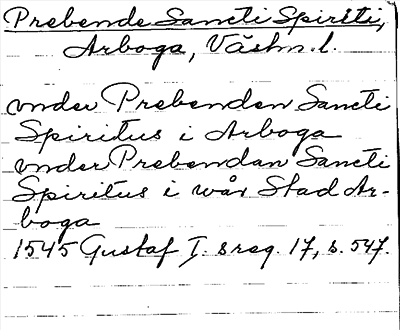 Prebende Sancti Spiriti,
Arboga, Västm. l.
vnder Prebenden Sancti
Spiritus i Arboga
vnder Prebendan Sancti
Spiritus i wår Stad Ar-
boga
1545 Gustaf I. s reg. 17, s. 547.